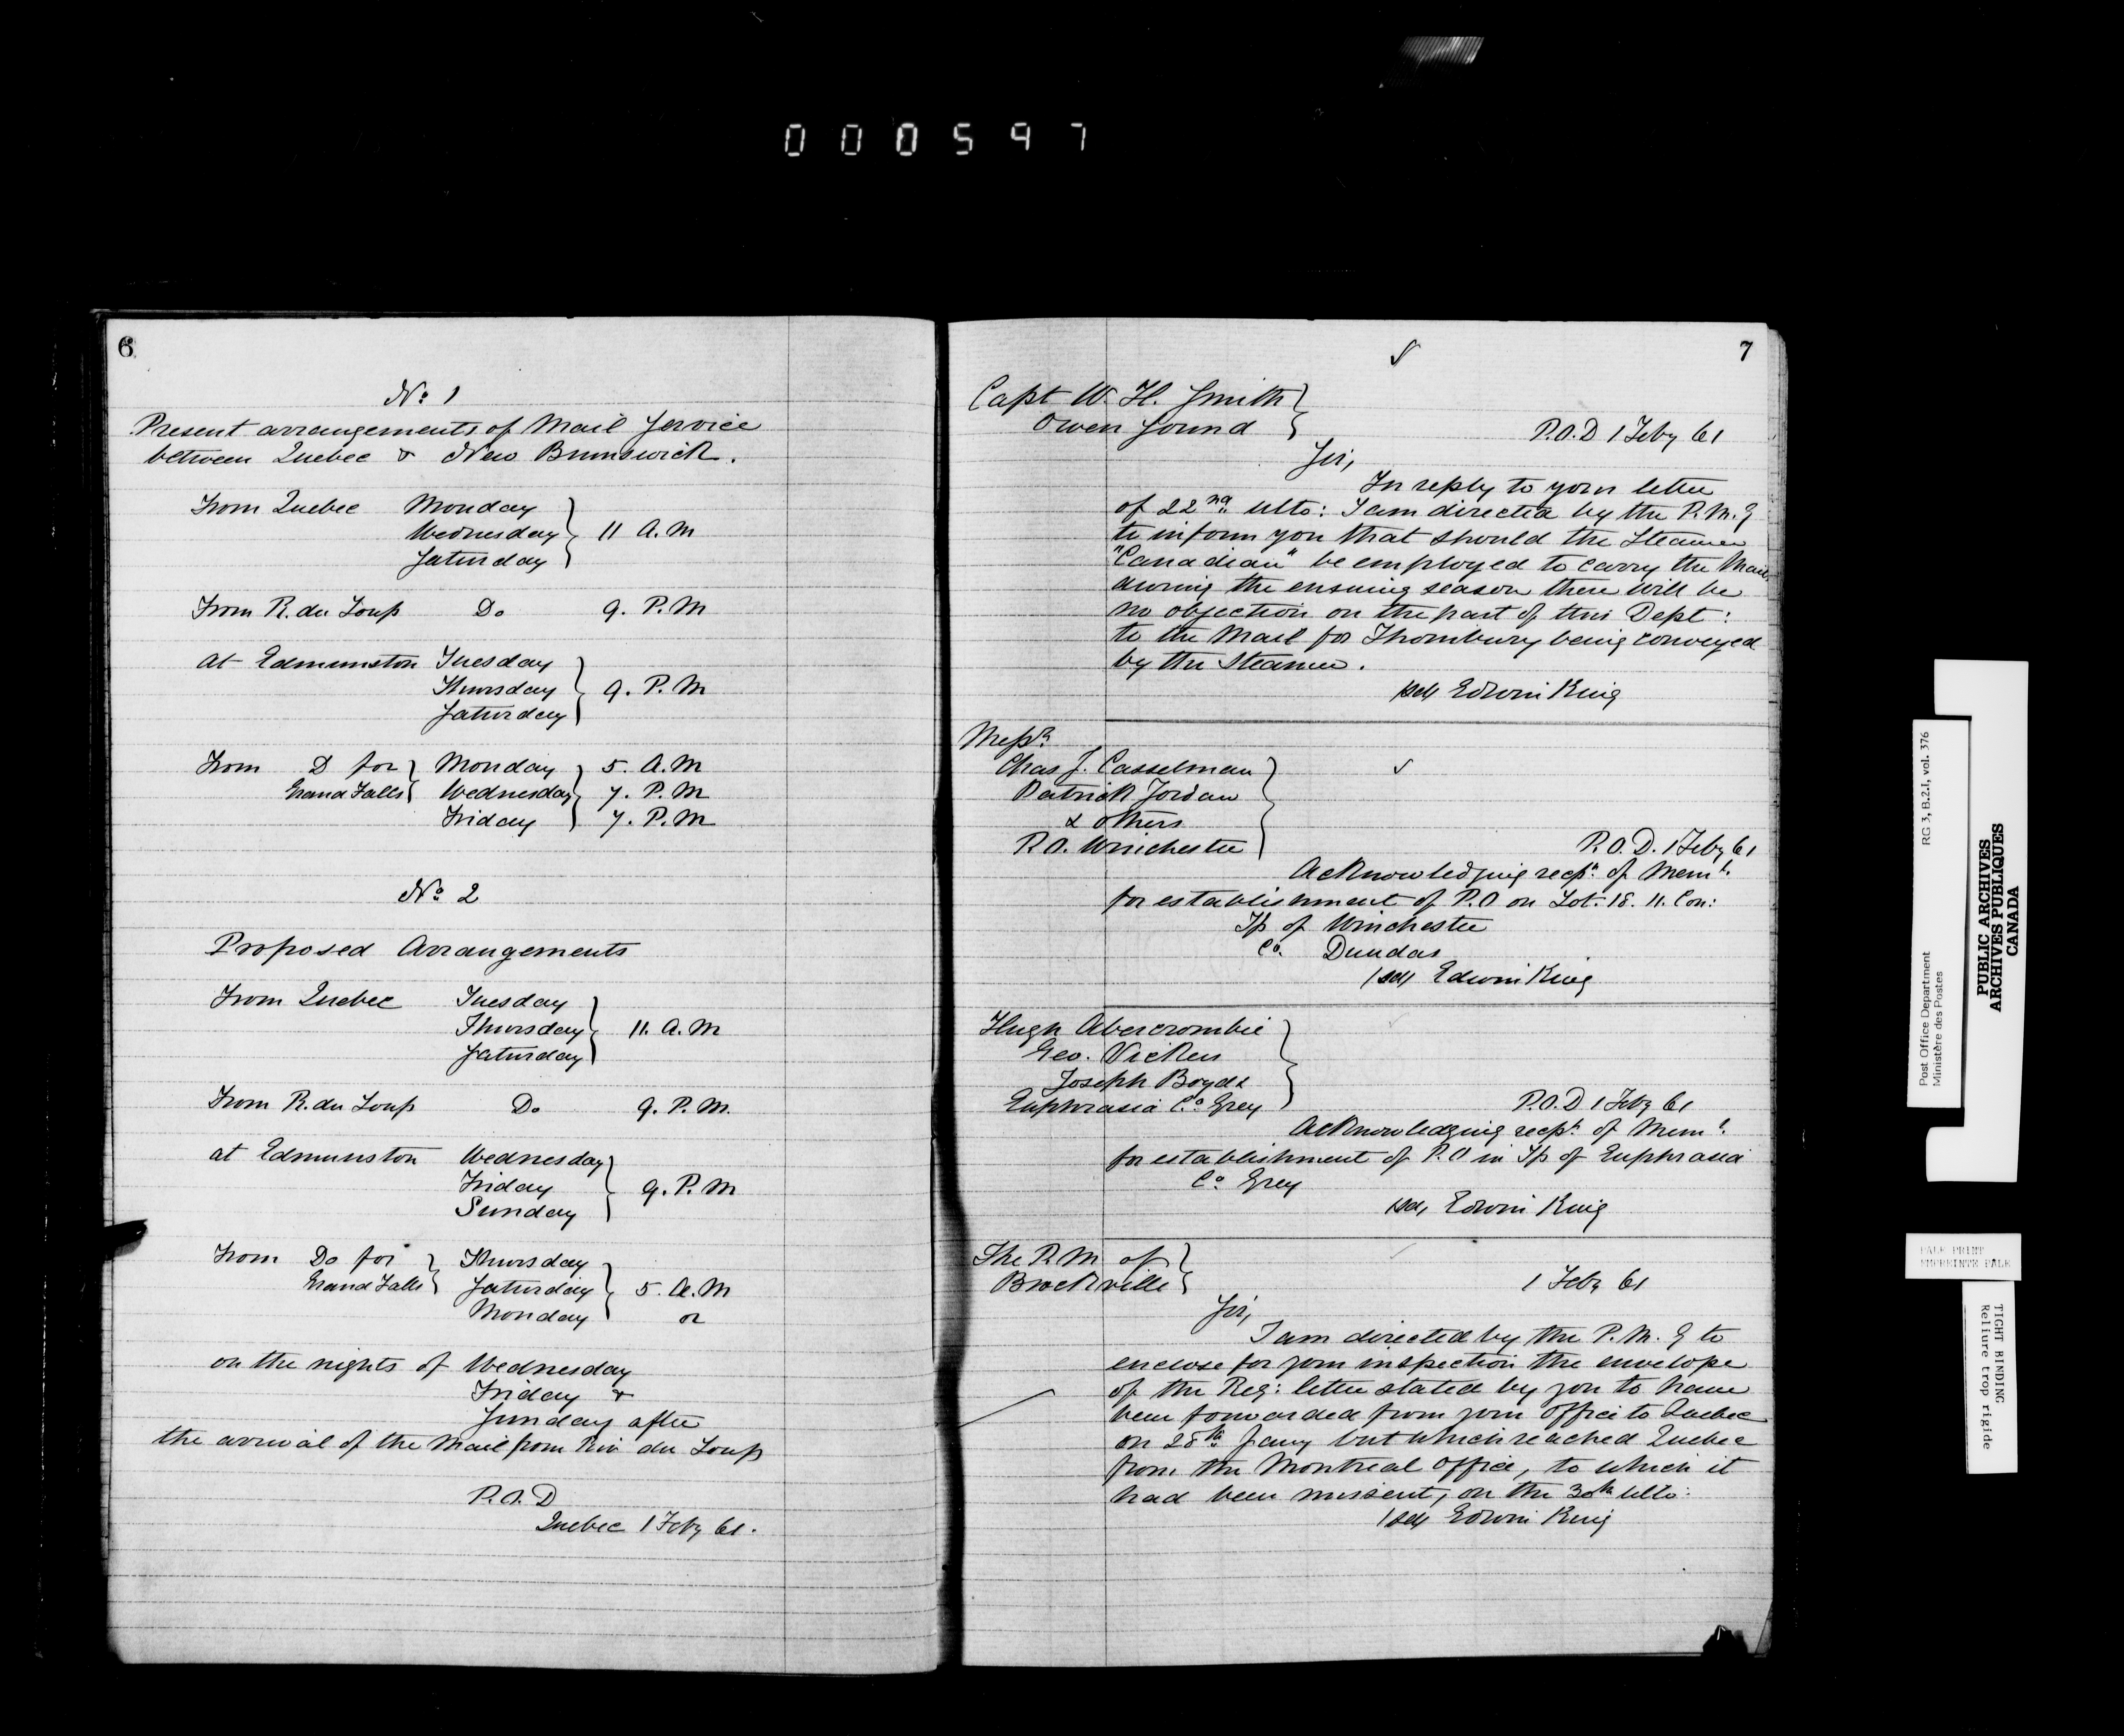 000597
6
No. 1
Present arrangements of Mail Service
between Quebec & New Brunswick.
From Quebec Monday
Wednesday } 11 A.M
Saturday
From R. du Loup Do 9. P.M
at Edmunston Tuesday
Thursday } 9. P.M
Saturday
From D for } Monday } 5. A.M
Grand Falls Wednesday 7. P.M
Friday 7. P.M
No. 2
Proposed Arrangements
From Quebec Tuesday
Thursday } 11. A.M
Saturday
From R. du Loup Do 9. P.M.
at Edmunston Wednesday
Friday } 9. P.M
Sunday
From Do for } Thursday
Grand Falls Saturday } 5. A.M
Monday or
on the nights of Wednesday
Friday &
Sunday after
the arrival of the Mail from Riv du Loup
P.O.D
Quebec 1 Feby 61.
7
Capt W. H. Smith
Owen Sound
P.O.D 1 Feby 61
Sir,
In reply to your letter
of 22nd ulto: I am directed by the P.M.G
to inform you that should the Steamer
"Canadian" be employed to carry the Mail
during the ensuing season there will be
no objection on the part of this Dept:
to the Mail for Thornbury being conveyed
by the Steamer.
/sd/ Edwin King
Messrs
Chas J. Casselman
Patrick Jordan
& others
P.O. Winchester
P.O.D. 1 Feby 61
Acknowledging recpt. of Meml.
for establishment of P.O on Lot. 18. 11. Con:
Tp of Winchester
Co. Dundas
/sd/ Edwin King
Hugh Abercrombie
Geo. Vickers
Joseph Boyd &
Euphrasia Co. Grey
P.O.D 1 Feby 61
Acknowledging recpt. of Meml.
for establishment of P.O in Tp of Euphrasia
Co. Grey
/sd/ Edwin King
The P.M. of
Brockville
1 Feby 61
Sir,
I am directed by the P.M.G to
enclose for your inspection the envelope
of the Reg: letter stated by you to have
been forwarded from your Office to Quebec
on 28th Jany but which reached Quebec
from the Montreal Office, to which it
had been missent, on the 30th ulto:
/sd/ Edwin King
Post Office Department RG 3, B.2.I, vol. 376
Ministère des Postes
PUBLIC ARCHIVES
ARCHIVES PUBLIQUES
CANADA
PALE PRINT
EMPREINTE PALE
TIGHT BINDING
Reliure trop rigide